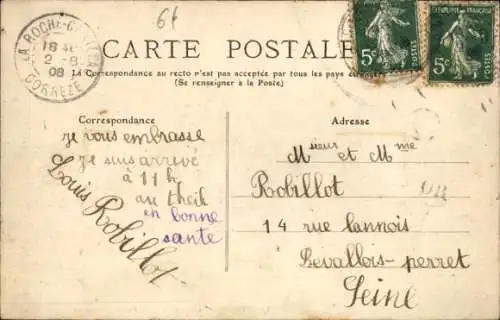 6f
LA ROCHE-CANILLAC
18 40
2 -8
08
CORREZE
CARTE POSTALE
5c POSTES
5c POSTES
La Correspondance au recto n'est pas acceptée par tous les pays étrangers
(Se renseigner à la Poste).
Correspondance
je vous embrasse
je suis arrivé
à 11 h
au theil
en bonne
sante
Louis Robillot
Adresse
Msieur et Mme
Robillot
14 rue Lannois
Levallois-perret
Seine